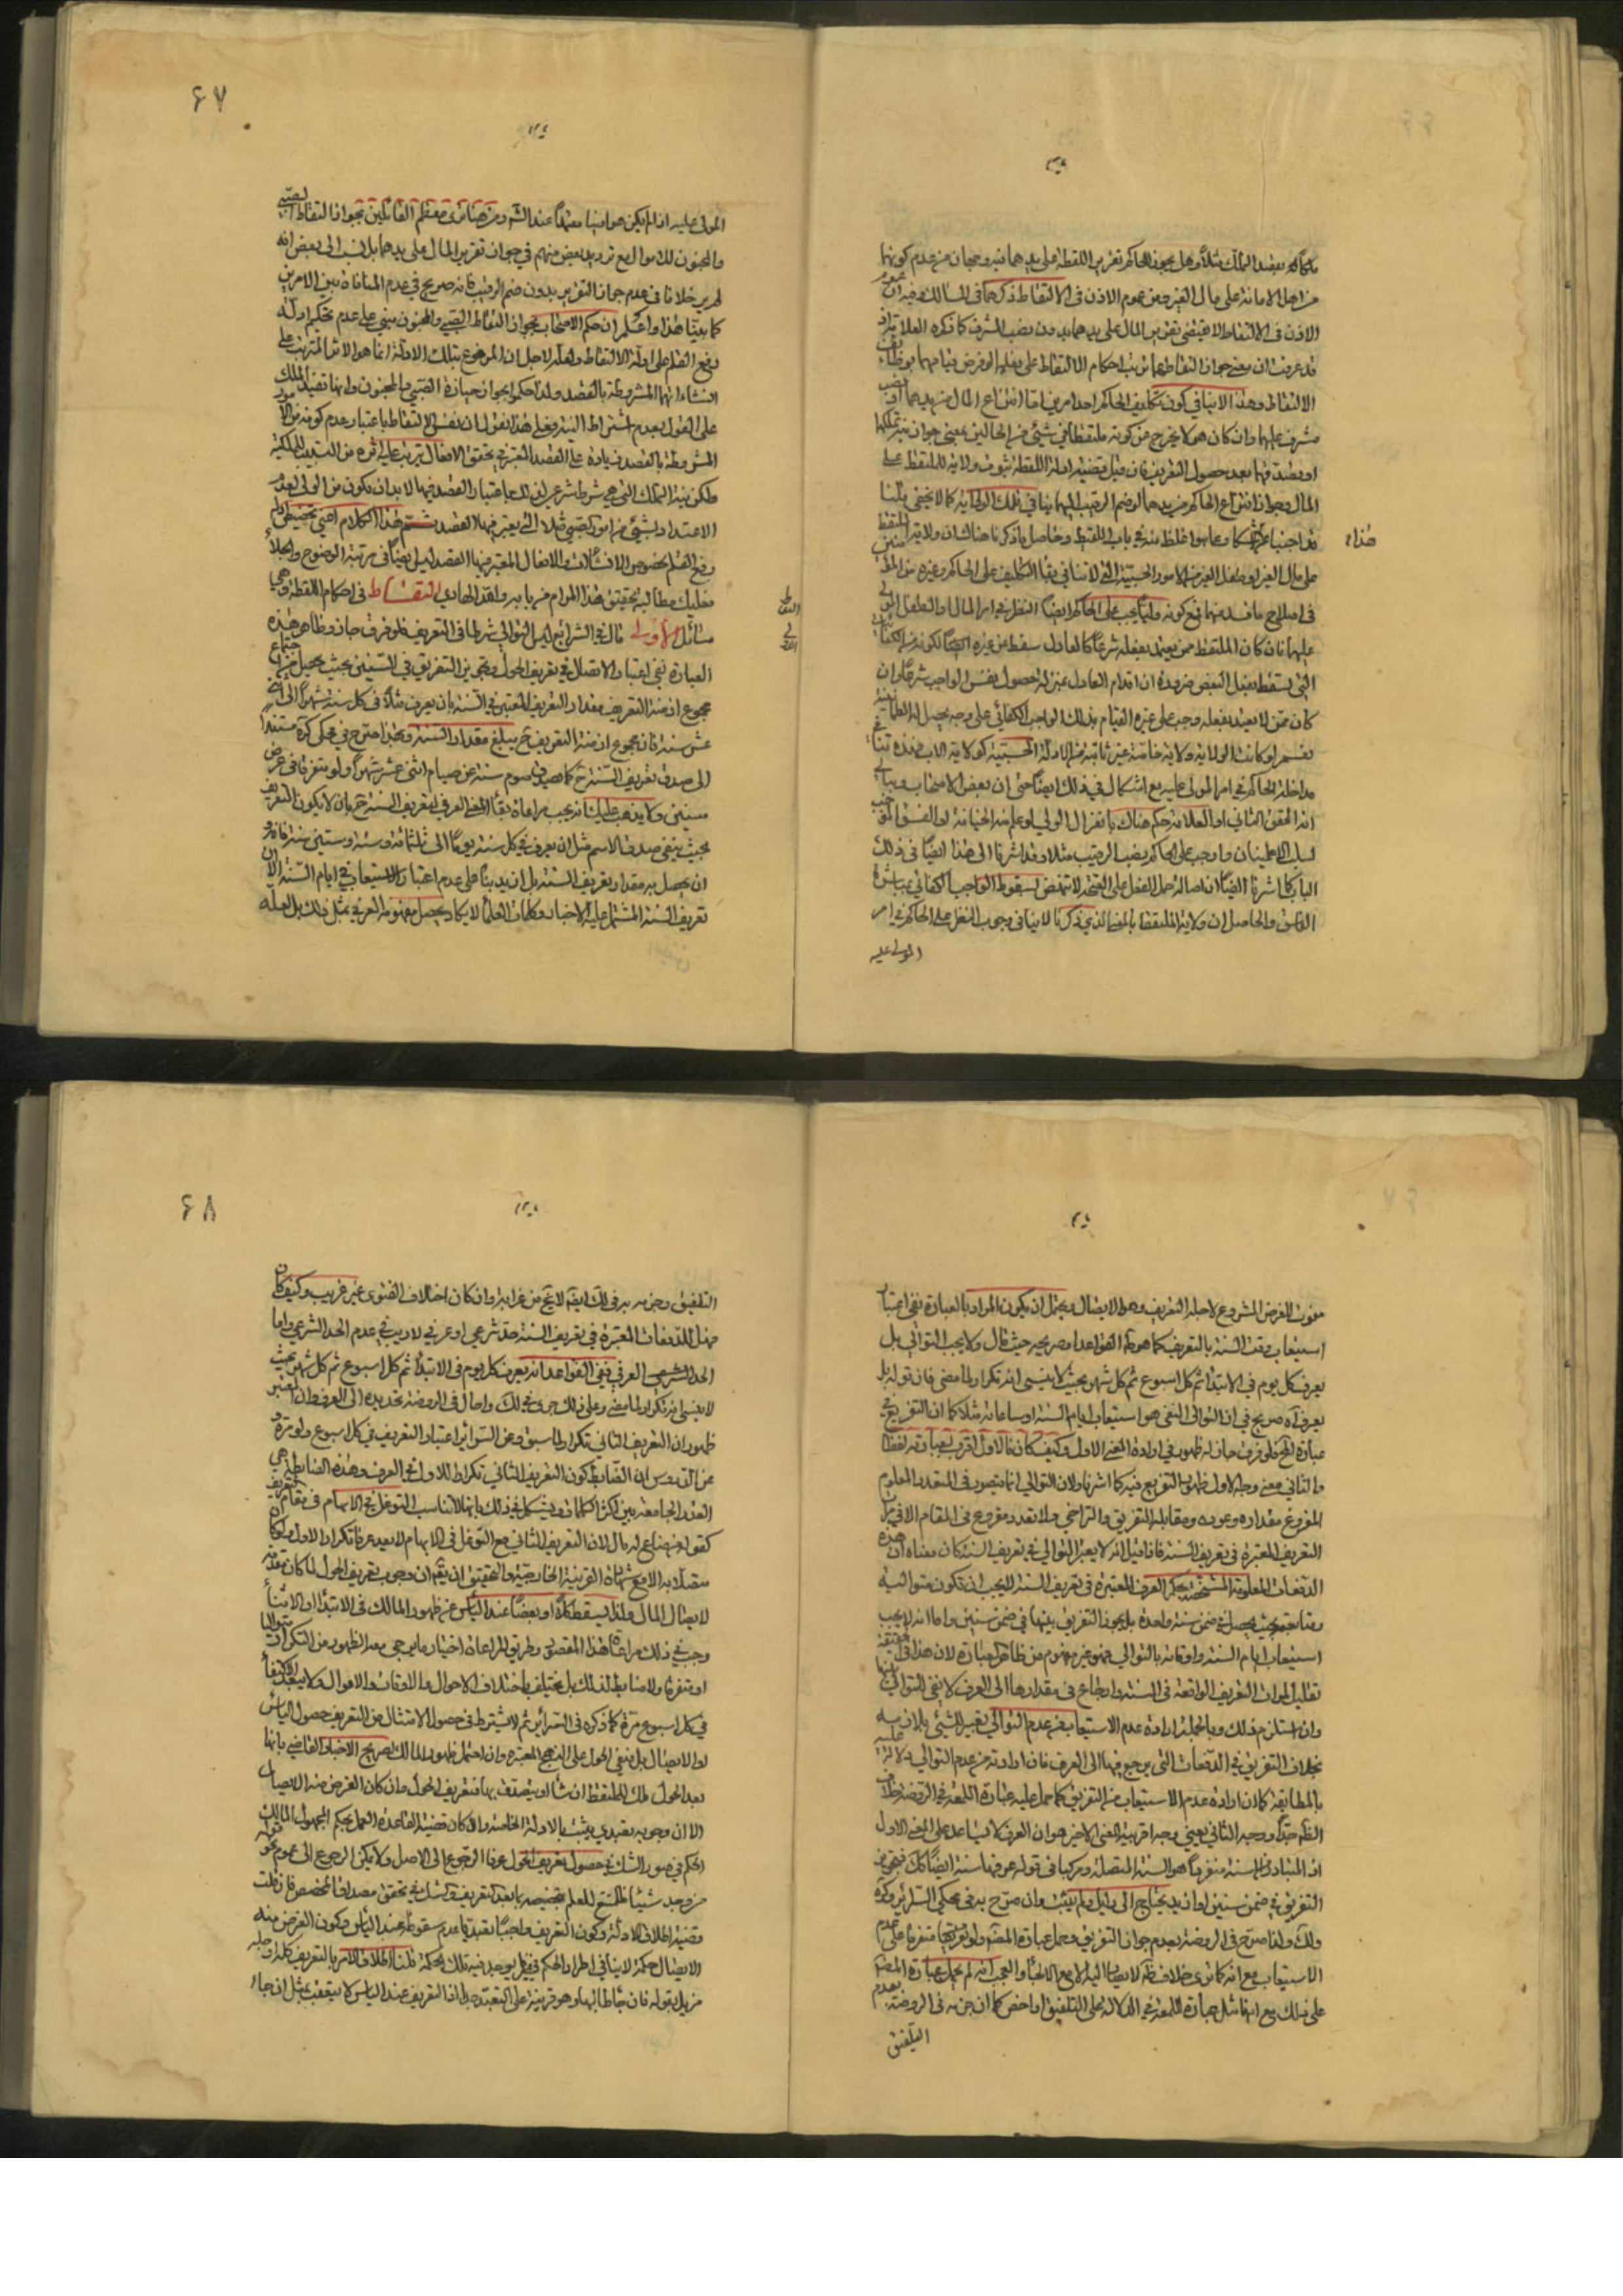 مالكا له بقصد التملك مثلا وهل يجوز للحاكم تقرير اللقطة على يدهما فيه وجهان من عدم كونهما
من اهل الامانة على مال الغير ومن عموم الاذن فى الالتقاط ذكرهما فى المسالك وفيه ان عموم
الاذن فى الالتقاط لا يقتضى تقرير المال على يدهما بدون نصب المشرف كما ذكره العلامة اذ
قد عرفت ان معنى جواز التقاطهما ترتب احكام الالتقاط على فعلهما
الالتقاط وهذا لا ينافى كون تكليف الحاكم احد امرين اما انتزاع المال من يدهما او نصب
مشرف عليهما وان كان هو لا يخرج من كونه ملتقطا فى شيئى من الحالين بمعنى جواز
او تصدقها بعد حصول التعريف فان قيل قضية ادلة اللقطة ثبوت ولاية للملتقط على
المال وجواز انتزاع الحاكم من يدهما او ضم الرقيب اليهما ينافى تلك الولاية كما لا يخفى قلنا
هذا
على مال الغير او طفل الغير من الامور الحسبية التى لا تنافى بقاء التكليف على الحاكم وغيره من
عليهما فان كان الملتقط ممن يعتد بفعله شرعا كالعادل سقط عن غيره ايضا لكونه من
التى يسقط بفعل البعض ضرورة ان اقدام العادل بمنزلة حصول نفس الواجب شرعا وان
كان ممن لا يعتد بفعله وجب على غيره القيام بذلك الواجب الكفائى على وجه يحصل له الطمأنينة
نعم لو كانت الولاية ولاية خاصة غير ثابتة من الادلة الحسبية كولاية الاب
مداخلة الحاكم فى امر المولى عليه مع اشكال فى ذلك ايضا حتى ان بعض الاصحاب
المحقق الثانى او العلامة حكم هناك بانعزال الولى لو علم منه الخيانة او الفسق
لسلب الاطمينان واوجب على الحاكم نصب الرقيب مثلا وقد اشرنا الى هذا ايضا فى ذلك
الباب كما اشرنا ايضا ان اصالة حمل الفعل على الصحة لا تنهض لسقوط الواجب الكفائى بمباشرة
الفاسق والحاصل ان ولاية الملتقط بالمعنى الذى ذكرنا لا ينافى وجوب النظر على الحاكم فى امر
المولى عليه
۶۷
المولى عليه اذا لم يكن هو امينا معتمدا عند الشرع ومن هنا ترى معظم القائلين بجواز التقاط الصبى
والمجنون للاموال مع ترديد بعض منهم فى جواز تقرير المال على يدهما بل نسب الى بعض انه
لم ير خلافا فى عدم جواز التقرير بدون ضم الرقيب فانه صريح فى عدم المنافاة بين الامرين
كما بينا هذا واعلم ان حكم الاصحاب بجواز التقاط الصبى والمجنون مبنى على عدم تحكيم ادلة
رفع القلم على ادلة الالتقاط ولعله لاجل ان المرفوع بتلك الادلة انما هو الاثر المترتب على
انشاءاتهما المشروطة بالقصد ولذا حكموا بجواز حيازة الصبى والمجنون وانها تفيد الملك
على القول بعدم اشتراط النية وفعلى هذا نقول ان نفس الالتقاط باعتبار عدم كونه من الامور
المشروطة بالقصد زيادة على القصد المعتبر فى تحقق الافعال يترتب عليه اثره من التسبيب للملكية
ولكن نية التملك التى هى شرط شرعى لذلك باعتبار القصد فيها لابد ان يكون من الولى لعدم
الاعتداد بشيئى من امور الصبى مثلا التى يعتبر فيها القصد ثم هذا الكلام اعنى تخصيص
رفع القلم بخصوص الانشائات والافعال المعتبر فيها القصد ليس ايضا فى مرتبة الوضوح والجلاء
فعليك مطالبة تحقيق هذا المرام من بابه والله الهادى التقاط فى احكام اللقطة وهى
مسائل الاولى قال فى الشرايع ليس التوالى شرطا فى التعريف فلو فرق جاز وظاهر هذه
العبارة نفى اعتبار الاتصال فى تعريف الحول وتجويز التفريق فى السنتين بحيث يحصل من اجتماع
مجموع ازمنة التعريف مقدار التعريف المعتبر فى السنة بان يعرف مثلا فى كل سنة شهرا الى اثنى
عشر سنة فان مجموع ازمنة التعريف ح يبلغ مقدار السنة وبهذا صرح فى محكى كره مستندا
الى صدق تعريف السنة ح كما يصدق صوم سنة عن صيام اثنى عشر شهرا ولو متفرقا فى عرض
سنين ولا يذهب عليك انه يجب مراعاة بقاء المعنى العرفى لتعريف السنة ح بان لا يكون التعريف
بحيث ينفى صدق الاسم مثل ان يعرف فى كل سنة يوما الى ثلثمائة وستة وستين سنة
ان يحصل به مقدار تعريف السنة بل ازيد بناء على عدم اعتبار الاستيعاب فى ايام السنة الا ان
تعريف السنة المشتمل عليه الاخبار وكلمات العلماء لا يكاد يحصل مفهومه العرفى بمثل ذلك بل لعله
مفوت للغرض المشروع لاجله التعريف وهو الايصال ويحتمل ان يكون المراد بالعبارة نفى اعتبار
استيعاب وقت السنة بالتعريف كما هو ظ القواعد او صريحه حيث قال ولا يجب التوالى بل
يعرف كل يوم فى الابتداء ثم كل اسبوع ثم كل شهر بحيث لا ينسى انه تكرار لما مضى فان قوله بل
يعرف اه صريح فى ان التوالى المنفى هو استيعاب ايام السنة او ساعاته مثلا كما ان التفريع فى
عبارة المحقق فلو فرق جاز له ظهور فى ارادة المعنى الاول وكيف كان فالاول اقرب بعبارته لفظا
والثانى معنى وجه الاول ظهور التفريع فيه كما اشرنا ولان التوالى انما يتصور فى المتعدد المعلوم
المفروغ مقداره وعدده ومقابله التفريق والتراخى ولا تعدد مفروغ فى المقام الا فى
التعريف المعتبرة فى تعريف السنة فاذا قيل انه لا يعتبر التوالى فى تعريف السنة كان معناه ان هذه
الدفعات المعلومة المشخصة بحكم العرف المعتبرة فى تعريف السنة لا يجب ان تكون متوالية
متتابعة بحيث يحصل فى ضمن سنة واحدة بل يجوز التفريق بينها فى ضمن سنين واما انه لا يجب
استيعاب ايام السنة واوقاته بالتوالى فهو غير مفهوم من ظاهر العبارة لان هذا فى الحقيقة
تقليل لمرات التعريف الواقعة فى السنة وارجاع فى مقدارها الى العرف لا نفى التوالى
وان استلزم ذلك وبالجملة ارادة عدم الاستيعاب من عدم التوالى تعبير الشيئى بلازمه
بخلاف التفريق فى الدفعات التى يرجع فيها الى العرف فان ارادته من عدم التوالى دلالة عليه
بالمطابقة كما ان ارادة عدم الاستيعاب من التفريق كما حمل عليه عبارة اللمعة فى الروضة خلاف
الظ جدا ووجه الثانى يعنى وجه اقربية المعنى الاخير هو ان العرف لا يساعد على المعنى الاول
اذ المتبادر من السنة منفردا هو السنة المتصلة ومركبا فى قوله عرفها سنة ايضا كك فتجويز
التفريق فى ضمن سنتين او ازيد يحتاج الى دليل ولم يثبت وان صرح به فى محكى السرائر وكره
ولك ولذا صرح فى الروضة بعدم جواز التفريق وحمل عبارة المصنف ولو متفرقا على عدم
الاستيعاب مع انه كما ترى خلاف ظ لا يصار اليه الا مع الالجاء والعجب انه لم يحمل عبارة المصنف
على ذلك مع انها مثل عبارة اللمعة فى الدلالة على التلفيق او اخفى كما ان جزمه فى الروضة بعدم
التلفيق
۶۸
التلفيق وجزمه به فى لك ايضا لا يخ من غرابة وان كان اختلاف الفتوى غير غريب وكيف كان
فهل للدفعات المعتبرة فى تعريف السنة حد شرعى او عرفى لا ريب فى عدم الحد الشرعى واما
الحد العرفى ففى القواعد انه يعرف كل يوم فى الابتداء ثم كل اسبوع ثم كل شهر بحيث
لا ينسى انه تكرار لما مضى وعلى ذلك جرى فى لك واحال فى الروضة تحديده الى العرف وان المعتبر
ظهور ان التعريف الثانى تكرار لما سبق وعن السرائر اعتبار التعريف فى كل اسبوع ولو مرة
عن الدروس ان الضابط كون التعريف الثانى تكرارا للاول فى العرف وهذه الضابطة هى
القدر الجامعة بين اكثر الكلمات ويشكل فى ذلك بانها لا تناسب التوغل فى الابهام فى مقام التعريف
كقوله من ضاع له مال لان التعريف الثانى مع التوغل فى الابهام لا يعد عرفا تكرارا للاول ولو كان
متصلا به الا مع شهادة القرينة الخارجية والتحقيق ان يقم ان وجوب تعريف الحول لما كان مقدمة
لايصال المال ولذا يسقط كلا او بعضا عند اليأس عن ظهور المالك فى الابتداء او الاثناء
وجب فى ذلك مراعاة هذا المقصد وطريق المراعاة اختيار ما يرجى معه الظهور من التكرار متواليا
او متفرقا ولا ضابط لذلك بل يختلف باختلاف الاحوال والاوقات والاموال ولا يبعد الاكتفاء
فى كل اسبوع مرة كما ذكره فى السرائر ثم لا يشترط فى حصول الامتثال من التعريف حصول اليأس
او الايصال بل مضى الحول على النهج المعتبر وان احتمل ظهور المالك لصريح الاخبار القاضى بانها
بعد الحول ملك للملتقط ان شاء او يتصدق بها فتعريف الحول وان كان الغرض منه الايصال
الا ان وجوبه تعبدى يثبت بالادلة الخاصة والا كان قضية القاعدة العمل بحكم المجهول المالك
الحكم فى صورة الشك فى حصول تعريف الحول عرفا الرجوع الى الاصل ولا يمكن الرجوع الى عموم نحو قوله
من وجد شيئا للتمتع للعلم بتخصيصه بما بعد التعريف والشك فى تحقق مصداق المخصص فان قلت
قضية اطلاق الادلة وكون التعريف واجبا تعبديا عدم سقوطه عند اليأس وكون الغرض منه
الايصال حكمة لا ينافى اطراد الحكم فيما لم يوجد فيه تلك الحكمة قلنا اطلاق الامر بالتعريف كله او جله
مزيل بقوله فان جاء طالبها وهو قرينة على التعبد ولما التعريف عند اليأس لا يتعقب بمثل ان جاء